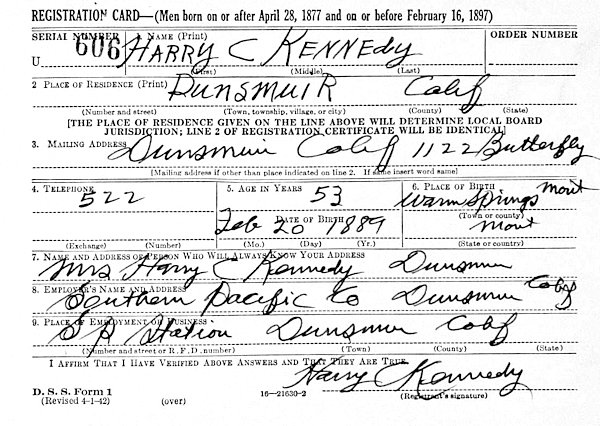 REGISTRATION CARD—(Men born on or after April 28, 1877 and on or before February 16, 1897)
SERIAL NUMBER
1. NAME (Print)
ORDER NUMBER
U 606
HARRY C KENNEDY
(First) (Middle) (Last)
2 PLACE OF RESIDENCE (Print)
DUNSMUIR Calif
(Number and street) (Town, township, village, or city) (County) (State)
[THE PLACE OF RESIDENCE GIVEN ON THE LINE ABOVE WILL DETERMINE LOCAL BOARD
JURISDICTION; LINE 2 OF REGISTRATION CERTIFICATE WILL BE IDENTICAL]
3. MAILING ADDRESS
Dunsmuir Calif 1122 Butterfly
[Mailing address if other than place indicated on line 2. If same insert word same]
4. TELEPHONE
522
(Exchange) (Number)
5. AGE IN YEARS
53
DATE OF BIRTH
Feb 20 1889
(Mo.) (Day) (Yr.)
6. PLACE OF BIRTH
Warm Springs Mont
(Town or county)
Mont
(State or country)
7. NAME AND ADDRESS OF PERSON WHO WILL ALWAYS KNOW YOUR ADDRESS
Mrs Harry C Kennedy Dunsmuir
Calif
8. EMPLOYER'S NAME AND ADDRESS
Southern Pacific Co Dunsmuir
9. PLACE OF EMPLOYMENT OR BUSINESS
S P Station Dunsmuir Calif
(Number and street or R. F. D. number) (Town) (County) (State)
I AFFIRM THAT I HAVE VERIFIED ABOVE ANSWERS AND THAT THEY ARE TRUE.
Harry C Kennedy
D. S. S. Form 1
(Revised 4-1-42) (over) 16—21630-2 (Registrant's signature)